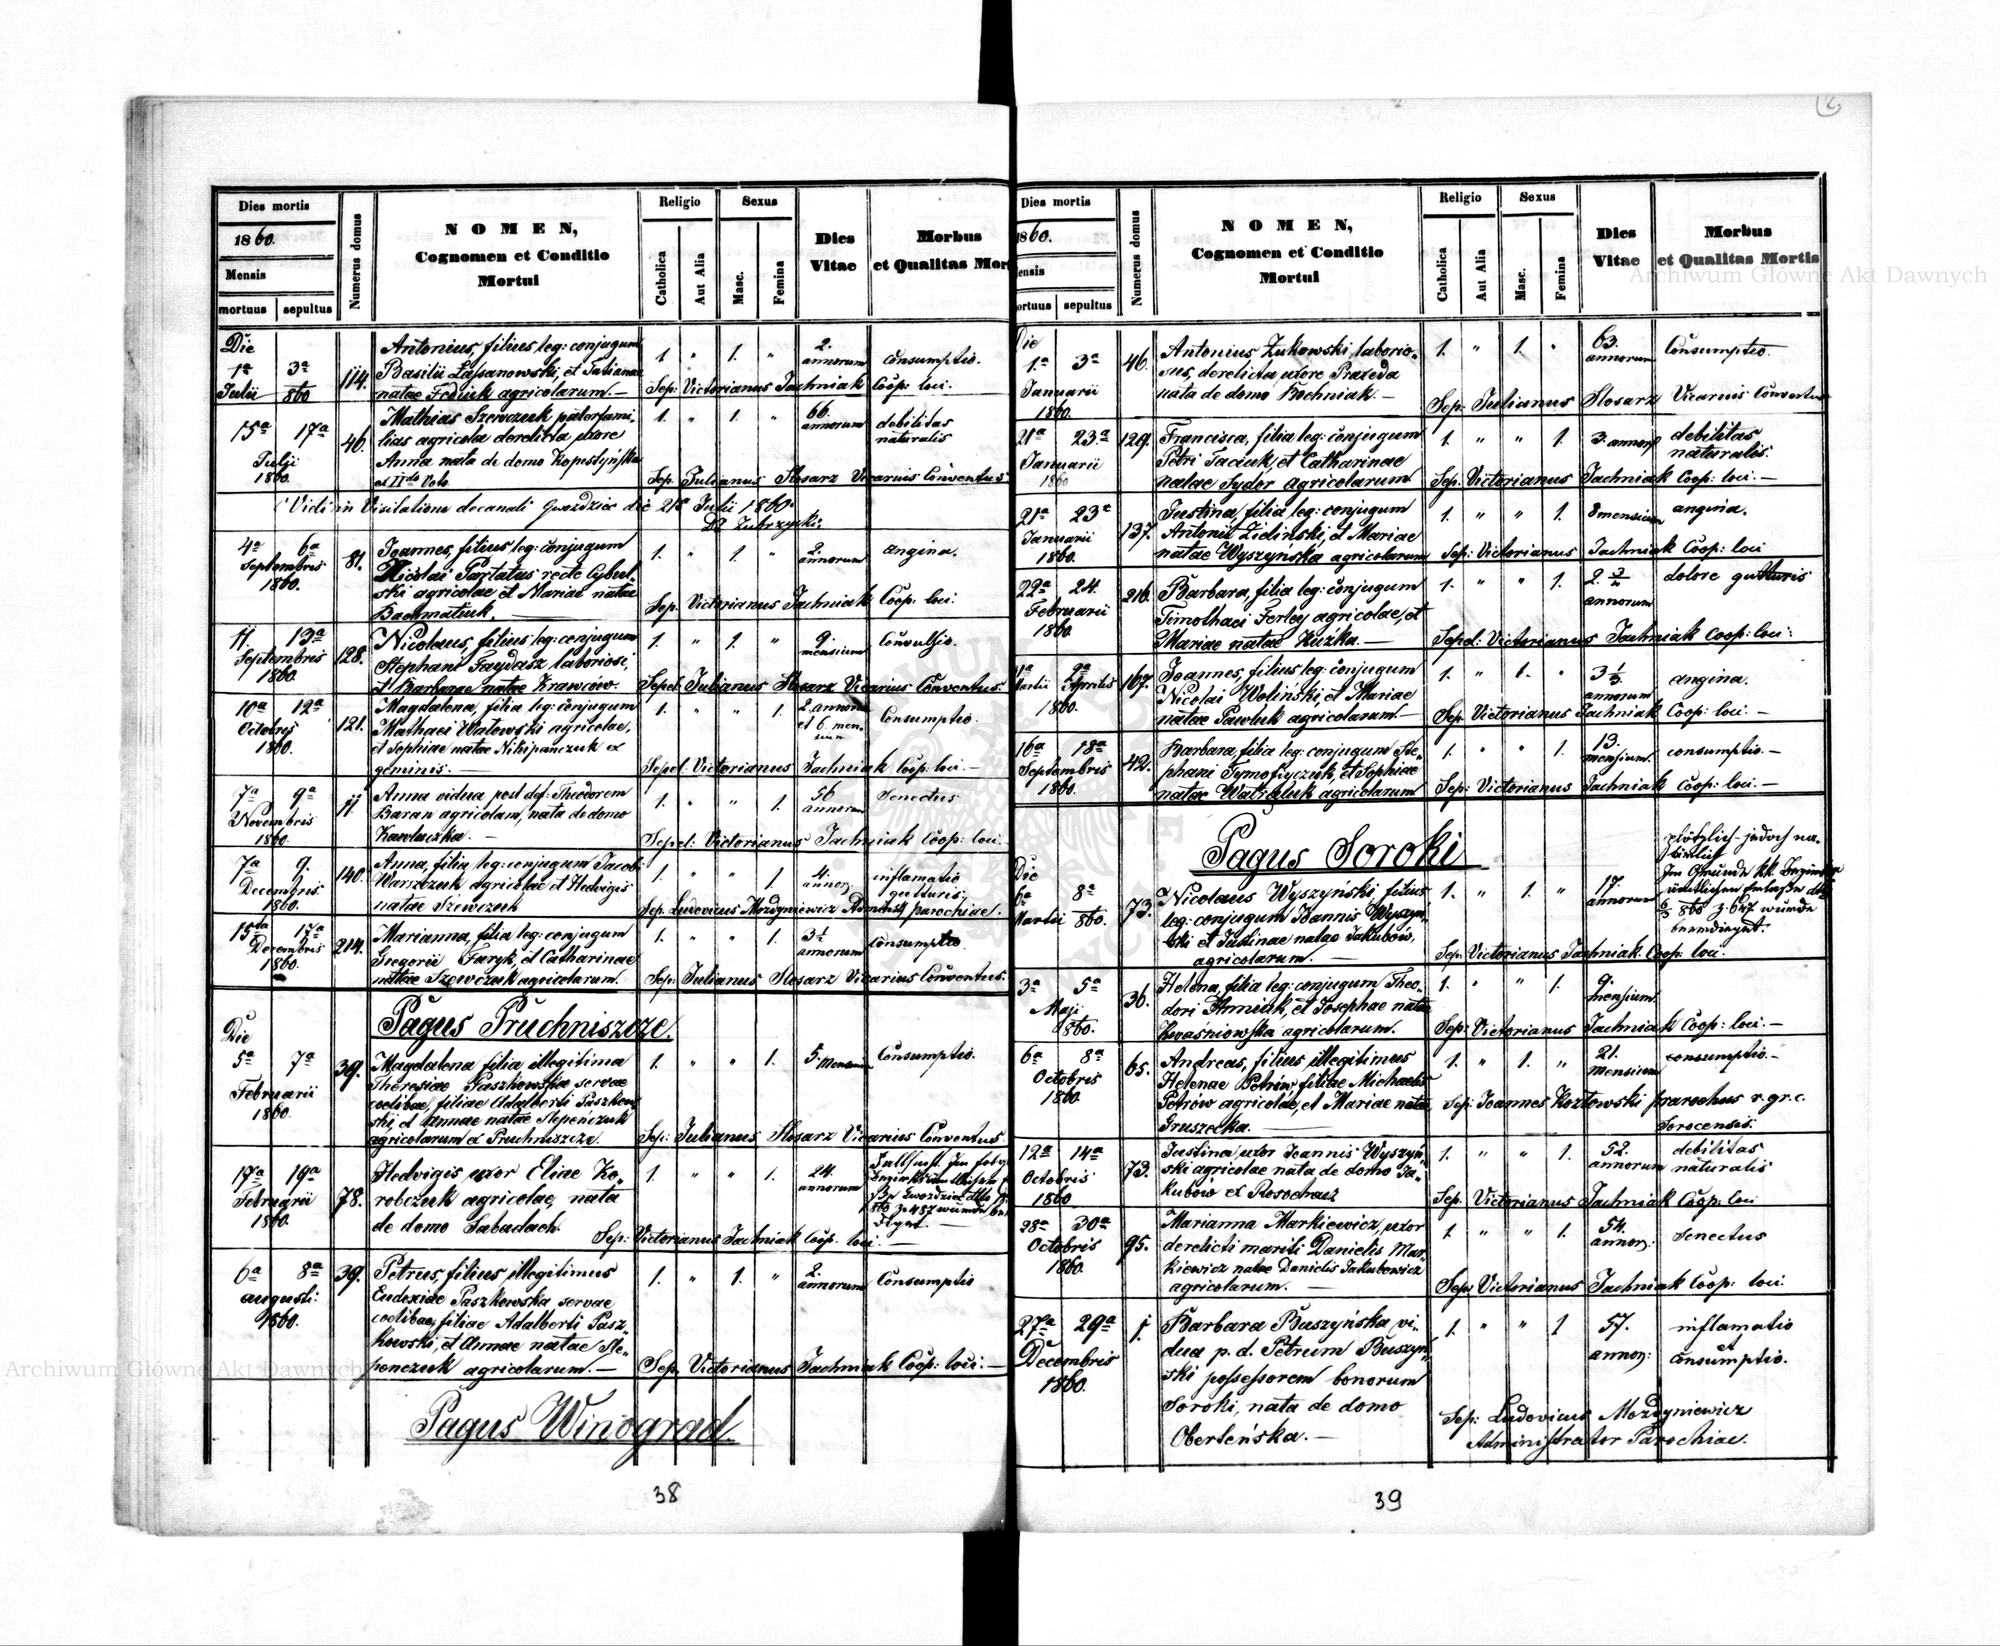 Dies mortis
1860.
Mensis
mortuus sepultus
Numerus domus
NOMEN,
Cognomen et Conditio
Mortui
Religio
Catholica
Aut Alia
Sexus
Masc.
Femina
Dies
Vitae
Morbus
et Qualitas Mort
Die
1ª 3ª
Julii 860
114.
Antonius, filius leg: conjugum
Basilii Łassanowski, et Tatianae
natae Fediuk agricolarum.—
1. " 1. "
2.
annorum
Consumptio.
Sep: Victorianus Jachniak Coop: loci.
15ª 17ª
Julii
1860.
46.
Mathias Szewczuk paterfami-
lias agricola derelicta uxore
Anna nata de domo Kopestyńska
et IIdo Voto
1. " 1. "
66.
annorum
debilitas
naturalis
Sep: Julianus Slosarz Vicarius Conventus
Vidi in Visitatione decanali Gwozdziec die 21ª Julii 1860.
4ª 6ª
Septembris
1860.
81.
Joannes, filius leg: conjugum
Nicolai Partatus recte Cybul-
ski agricolae et Mariae natae
Bachmatiuk.
1. " 1. "
2.
annorum
angina.
Sep: Victorianus Jachniak Coop: loci.
11. 13ª
Septembris
1860.
128.
Nicolaus, filius leg: conjugum
Stephani Faydasz laboriosi,
et Barbarae natae Krawców.
1. " 1. "
9.
mensium
Convulsio.
Sepel: Julianus Slosarz Vicarius Conventus.
10ª 12ª
Octobris
1860.
121.
Magdalena, filia leg: conjugum
Mathaei Watowski agricolae,
et Sophiae natae Nikipańczuk ex
geminis.—
1. " " 1.
2 annorum
et 6. men-
sium
Consumptio.
Sepel: Victorianus Jachniak Coop: loci.—
7ª 9ª
Novembris
1860.
11.
Anna vidua post def: Theodorem
Baran agricolam, nata de domo
Kawluczka.—
1. " " 1.
56
annorum
Senectus
Sepel: Victorianus Jachniak Coop: loci.
7ª 9.
Decembris.
1860.
140.
Anna, filia leg: conjugum Jacobi
Warszczuk agricolae et Hedvigis
natae Szewczuk
1. " " 1.
4.
annor:
inflamatio
gutturis.
Sep. Ludovicus Mozdyniewicz Admstr parochiae.
15ta 17ª
Decembris
1860.
214.
Marianna, filia leg: conjugum
Gregorii Faryk, et Catharinae
natae Szewczuk agricolarum.
1. " " 1.
annorum
Consumptio
Sep: Julianus Slosarz Vicarius Conventus.
Pagus Pruchniszcze.
Die
5ª 7ª
Februarii
1860.
39.
Magdalena filia illegitima
Theresiae Paszkowska servae
coelibae, filiae Adalberti Paszkow
ski, et Annae natae Stepeńczuk
agricolarum ex Pruchniszcze.
1. " " 1.
5. mensium
Consumptio.
Sep: Julianus Slosarz Vicarius Conventus
17ª 19ª
Februarii
1860.
78.
Hedvigis uxor Eliae Ko-
robczuk agricolae, nata
de domo Sabadach.
1. " " 1.
24.
annorum
Sep: Victorianus Jachniak Coop. loci.—
6ª 8ª
augusti.
1860.
39.
Petrus, filius illegitimus
Eudoxiae Paszkowska servae
coelibae, filiae Adalberti Pasz-
kowski, et Annae natae Ste-
penczuk agricolarum.—
1. " 1. "
2.
annorum
Consumptio
Sep. Victorianus Jachniak Coop: loci.—
Pagus Winograd.
38
Dies mortis
1860.
ensis
ortuus sepultus
Numerus domus
NOMEN,
Cognomen et Conditio
Mortui
Religio
Catholica
Aut Alia
Sexus
Masc.
Femina
Dies
Vitae
Morbus
et Qualitas Mortis
Archiwum Główne Akt Dawnych
Die
1ª 3ª
Januarii
1860.
46.
Antonius Żukowski, laborio-
sus, derelicta uxore Praxeda
nata de domo Kochniak.—
1. " 1. "
63.
annorum
Consumptio.
Sep: Julianus Slosarz Vicarius Conventus
21ª 23.ª
Januarii
1860
129.
Francisca, filia leg: conjugum
Petri Taciuk, et Catharinae
natae Sydor agricolarum
1. " " 1.
3. annor:
debilitas
naturalis.
Sep: Victorianus Jachniak Coop: loci.—
21ª 23ª
Januarii
1860.
137.
Justina, filia leg: conjugum
Antonii Zieliński, et Mariae
natae Wyszyńska agricolarum
1. " " 1.
8 mensium
angina.
Sep: Victorianus Jachniak Coop: loci
22ª 24.
Februarii
1860
216.
Barbara, filia leg: conjugum
Timothaei Ferley agricolae, et
Mariae natae Kuzka.—
1. " " 1.
annorum
dolore gutturis
Sepel: Victorianus Jachniak Coop: loci:
2ª
Martii Aprilis
1860.
167.
Joannes, filius leg: conjugum
Nicolai Woliński, et Mariae
natae Pawluk agricolarum.—
" 1. "
3 1/3
annorum
angina.
Sep: Victorianus Jachniak Coop: loci.—
16ª 18ª
Septembris
1860.
42.
Barbara, filia leg: conjugum Ste-
phani Tymofiyczuk, et Sophiae
natae Watraluk agricolarum
1. " " 1.
13.
mensium.
consumptio.—
Sep: Victorianus Jachniak Coop: loci.—
Pagus Soroki
Die
6ª 8ª
Martii 860.
73.
Nicolaus Wyszyński, filius
leg: conjugum Joannis Wyszyń-
ski et Justinae natae Jakubów,
agricolarum.—
1. " 1. "
17.
annorum
plötzlich jedoch na-
türlich
Sep: Victorianus Jachniak. Coop: loci.
3ª 5ª
Maji
860.
36.
Helena, filia leg: conjugum Theo-
dori Hrniuk, et Josephae natae
Kwaśniowska agricolarum.
1. " " 1.
9.
mensium.
Sep: Victorianus Jachniak Coop: loci.—
6ª 8ª
Octobris
1860.
65.
Andreas, filius illegitimus
Helenae Petrów, filiae Michaelis
Petrów agricolae, et Mariae natae
Gruszecka.—
1. " 1. "
21.
Mensium
consumptio.—
Sep: Joannes Kozłowski parochus r. gr. c.
Sorocensis.
12ª 14ª
Octobris
1860
73.
Justina, uxor Joannis Wyszyń-
ski agricolae nata de domo Ja-
kubów ex Rosochacz
1. " " 1.
52.
annorum
debilitas
naturalis
Sep. Victorianus Jachniak Coop: loci
28ª 30ª
Octobris
1860.
95.
Marianna Markiewicz, uxor
derelicti mariti Danielis Mar-
kiewicz natae Danielis Jakubowicz
agricolarum.—
1. " " 1.
54.
annor:
Senectus
Sep: Victorianus Jachniak Coop: loci
27ª 29ª
Decembris
1860.
1.
Barbara Buszyńska, vi-
dua p. d. Petrum Buszyń-
ski possessorem bonorum
Soroki, nata de domo
Oberleńska.—
1. " " 1
57.
annor:
inflamatio
et
Consumptio.
Sep: Ludovicus Mozdyniewicz
Administrator Parochiae.
39
Archiwum Główne Akt Dawnych